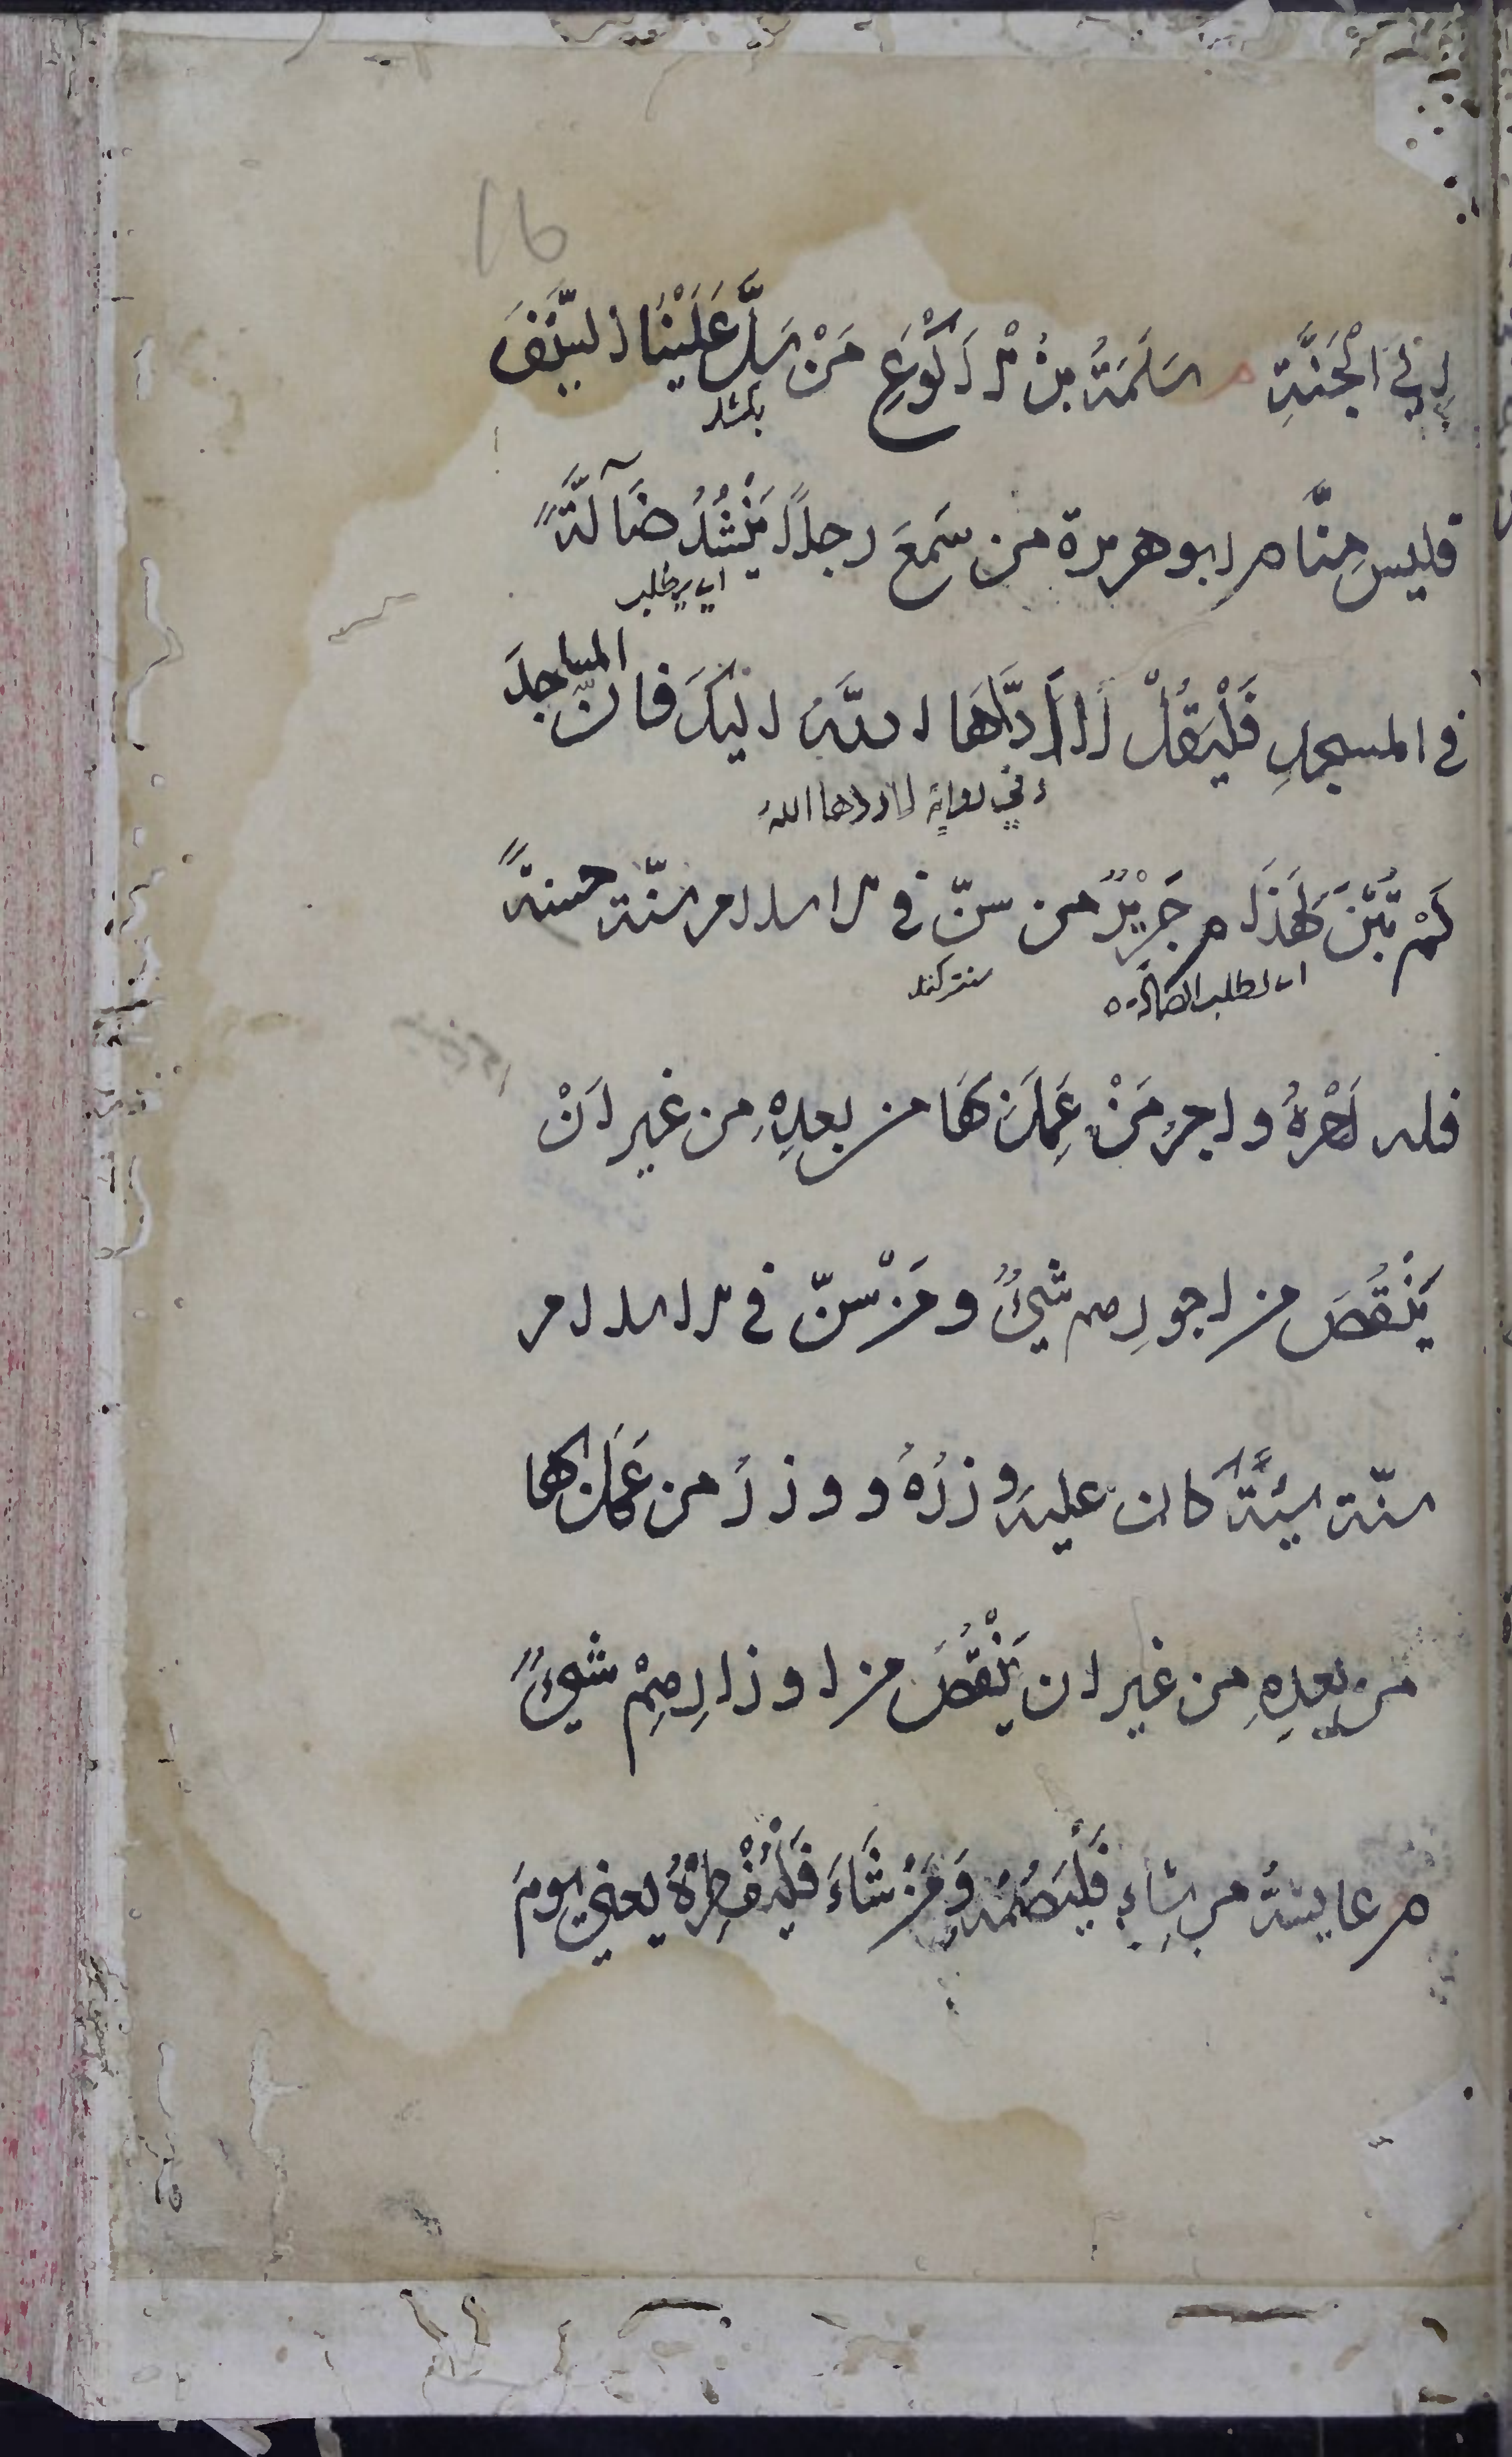 16
فِي الْجَنَّةِ م سَلَمَةُ بنُ الْاَكْوَعِ مَنْ سَلَّ عَلَيْنَا السَّيْفَ
بكشد
فليس مِنَّا م ابو هريرة من سَمعَ رجلاً يَنْشُدُ ضَآلَّةً
اي يطلب
في المسجدِ فَلْيَقُلْ لَا اَدَّاهَا اللهُ اِلَيْكَ فانّ المساجدَ
وفي رواية لا ردها الله
لَمْ تُبْنَ لِهَذَا م جَرِيْرٌ من سنّ في الاسلام سنّة حسنةً
اي لطلب الضالة
سنت كند
فله اَجْرُهُ و اجرُ مَنْ عَمِلَ بِهَا من بعدِهِ من غير انْ
يَنْقُصَ من اجورِهم شيءٌ و مَنْ سنّ في الاسلام
سنّة سيّئةً كان عليه وِزرُهُ و وِزرُ من عَمِلَ بها
من بعدِهِ من غير ان يَنْقُصَ من اوزارِهِمْ شيءٌ
م عايشةُ من شاءَ فَلْيَصُمْهُ وَ مَنْ شَاءَ فَلْيُفْطِرْهُ يعني يومَ